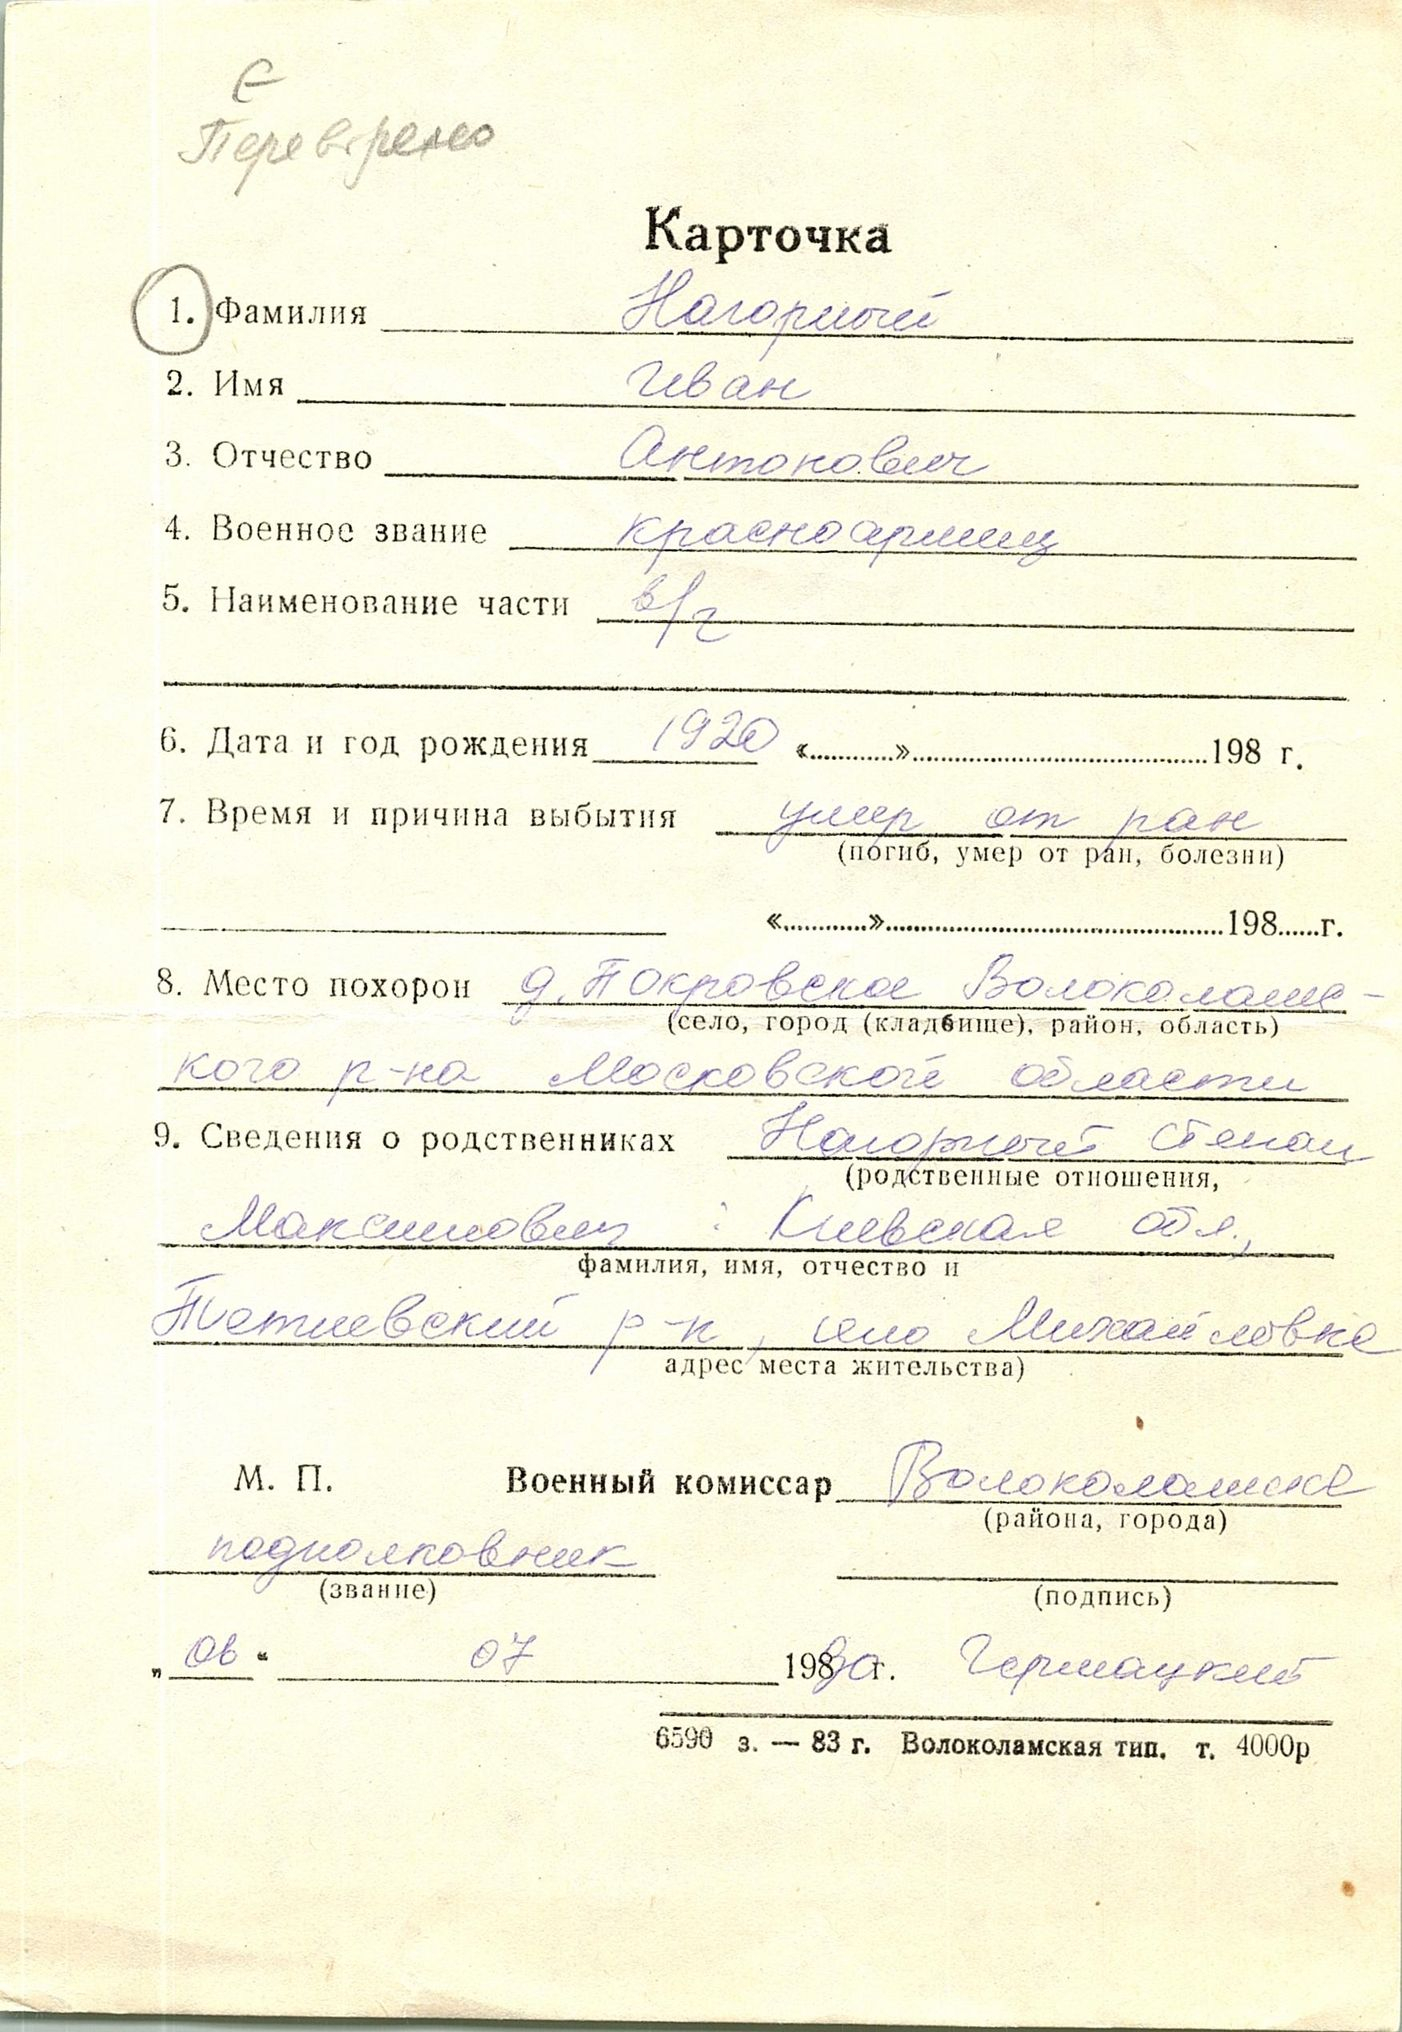 Є
Перевірено
Карточка
1. Фамилия Нагорный
2. Имя Иван
3. Отчество Антонович
4. Военное звание красноармеец
5. Наименование части в/ч
6. Дата и год рождения 1920 «...........»...........................................198 г.
7. Время и причина выбытия умер от ран
(погиб, умер от ран, болезни)
«...........»...........................................198......г.
8. Место похорон д. Покровское Волоколамс-
(село, город (кладбище), район, область)
кого р-на Московской области
9. Сведения о родственниках Нагорный Степан
(родственные отношения,
Максимович : Киевская обл.,
фамилия, имя, отчество и
Тетиевский р-н, село Михайловка
адрес места жительства)
М. П. Военный комиссар Волоколамска
(района, города)
подполковник
(звание) (подпись)
„ 06 “ 07 19890 г. Гермацкий
6590 з. — 83 г. Волоколамская тип. т. 4000р